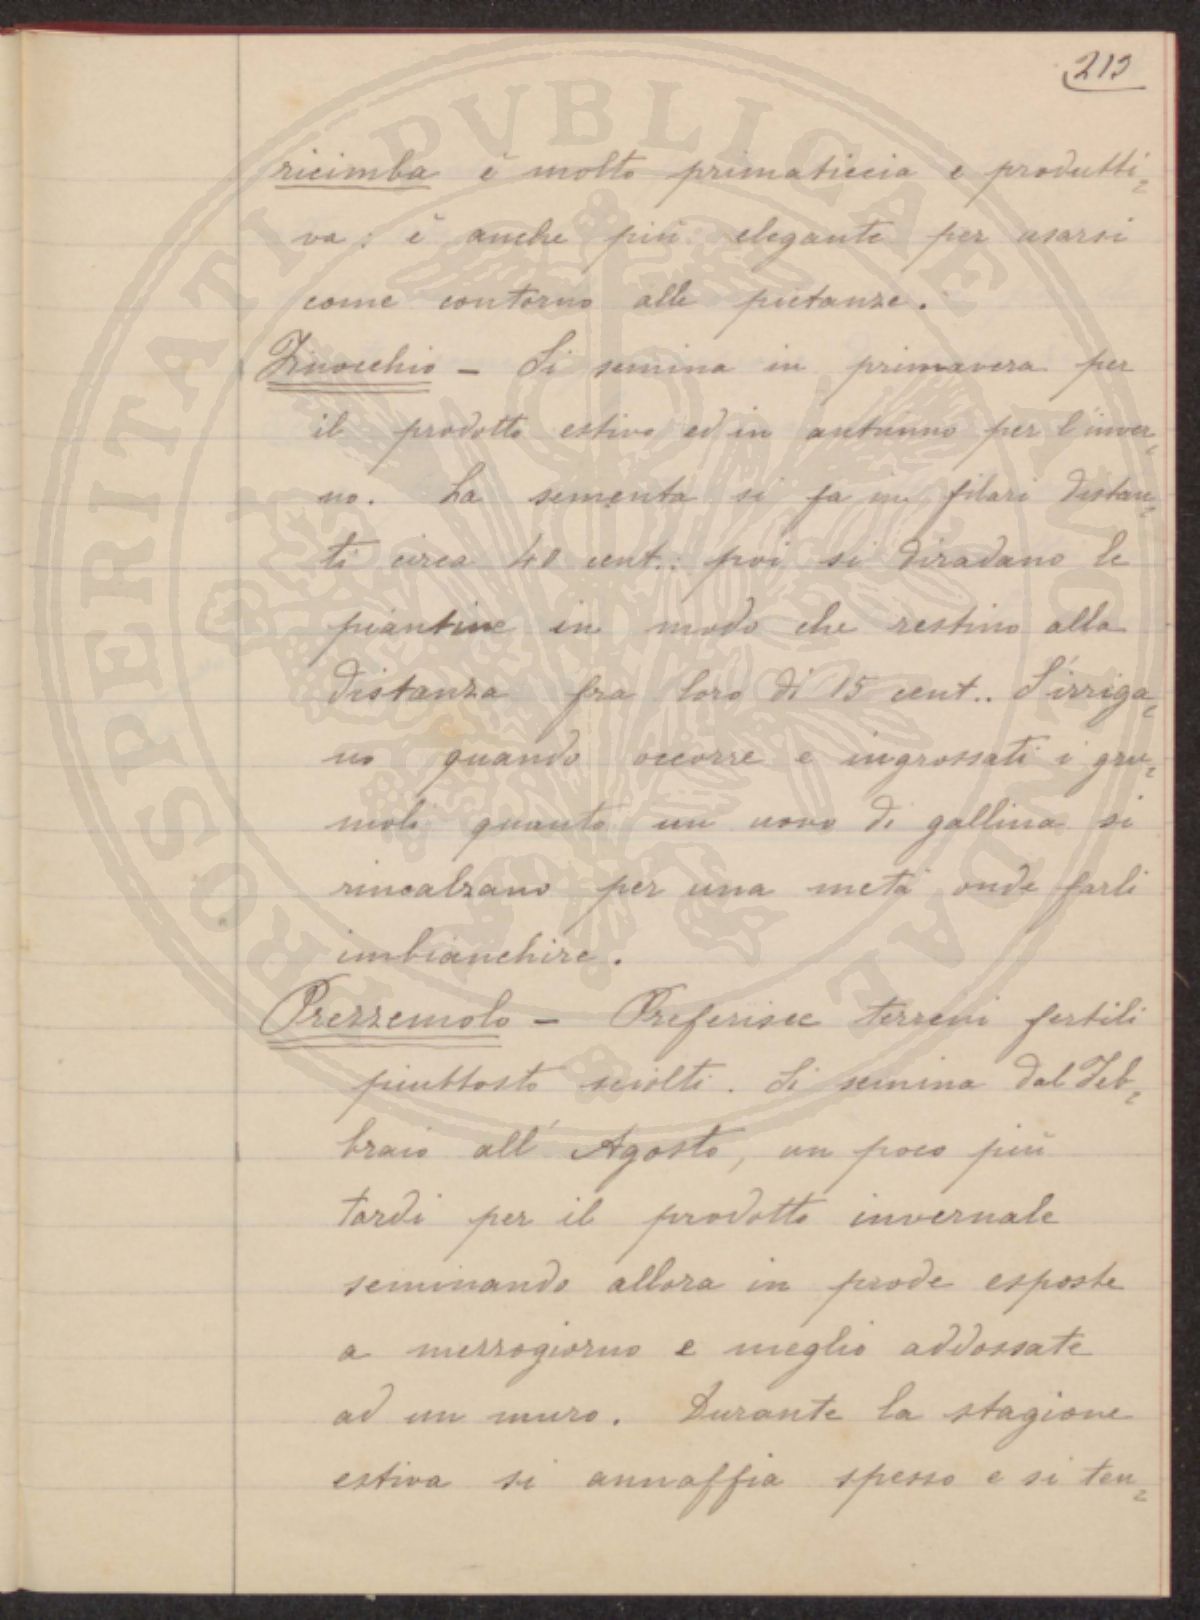 213
ricimba è molto primaticcia e produtti=
va; è anche più elegante per usarsi
come contorno alle pietanze.
Finocchio – Si semina in primavera per
il prodotto estivo ed in autunno per l'inver=
no. La sementa si fa in filari distan=
ti circa 40 cent.: poi si diradano le
piantine in modo che restino alla
distanza fra loro di 15 cent.. S'irriga=
no quando occorre e ingrossati i gru=
moli quanto un uovo di gallina si
rincalzano per una metà onde farli
imbianchire.
Prezzemolo – Preferisce terreni fertili
piuttosto sciolti. Si semina dal Feb=
braio all'Agosto, un poco più
tardi per il prodotto invernale
seminando allora in prode esposte
a mezzogiorno e meglio addossate
ad un muro. Durante la stagione
estiva si annaffia spesso e si ten=
PROSPERITATI PVBLICAE AVGENDAE